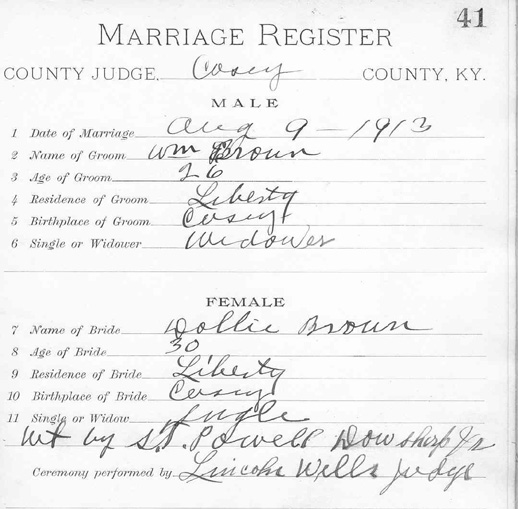 41
MARRIAGE REGISTER
COUNTY JUDGE, Casey COUNTY, KY.
MALE
1 Date of Marriage Aug 9 - 1913
2 Name of Groom Wm Brown
3 Age of Groom 26
4 Residence of Groom Liberty
5 Birthplace of Groom Casey
6 Single or Widower Widower
FEMALE
7 Name of Bride Dollie Brown
8 Age of Bride 30
9 Residence of Bride Liberty
10 Birthplace of Bride Casey
11 Single or Widow Single
Wt by S.T. Powell Dow Sharp Jr
Ceremony performed by Lincoln Wells Judge